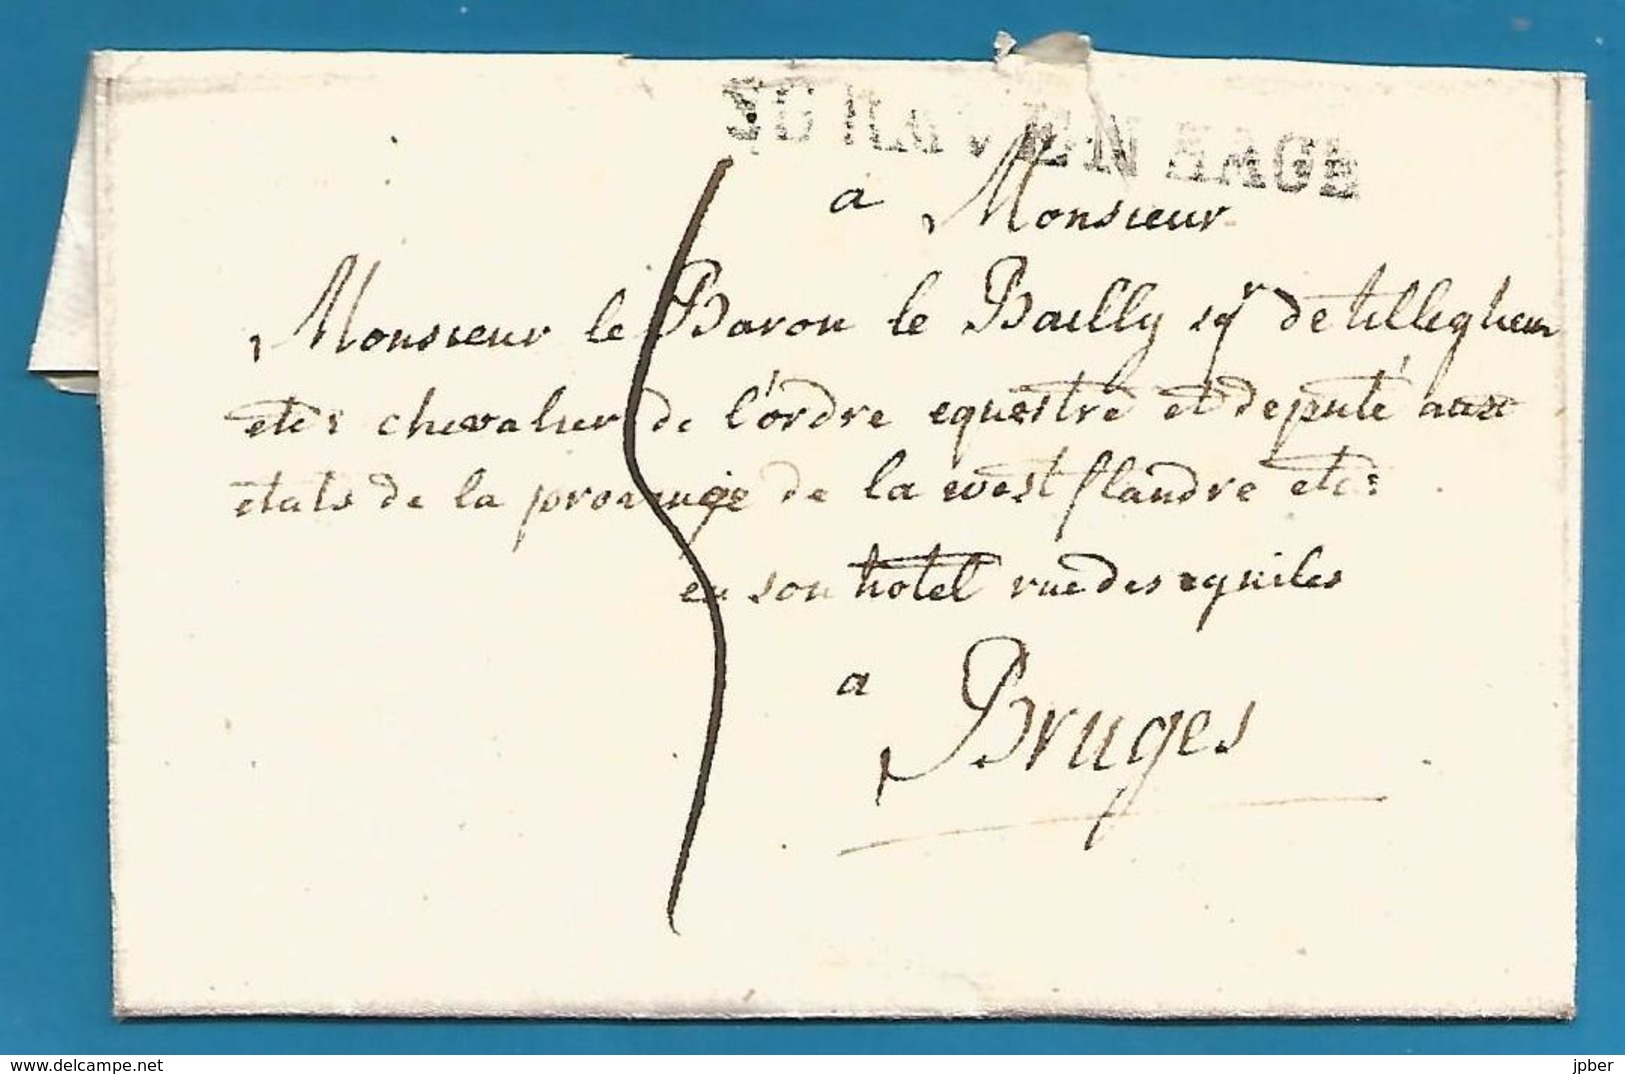 'S GRAVEN HAGE
a Monsieur
Monsieur le Baron le Bailly sgr de tilleghem
etc: chevalier de l'ordre equestre et deputé aux
etats de la provinçe de la west flandre etc:
en son hotel rue des eguiles
a
Bruges
jpber